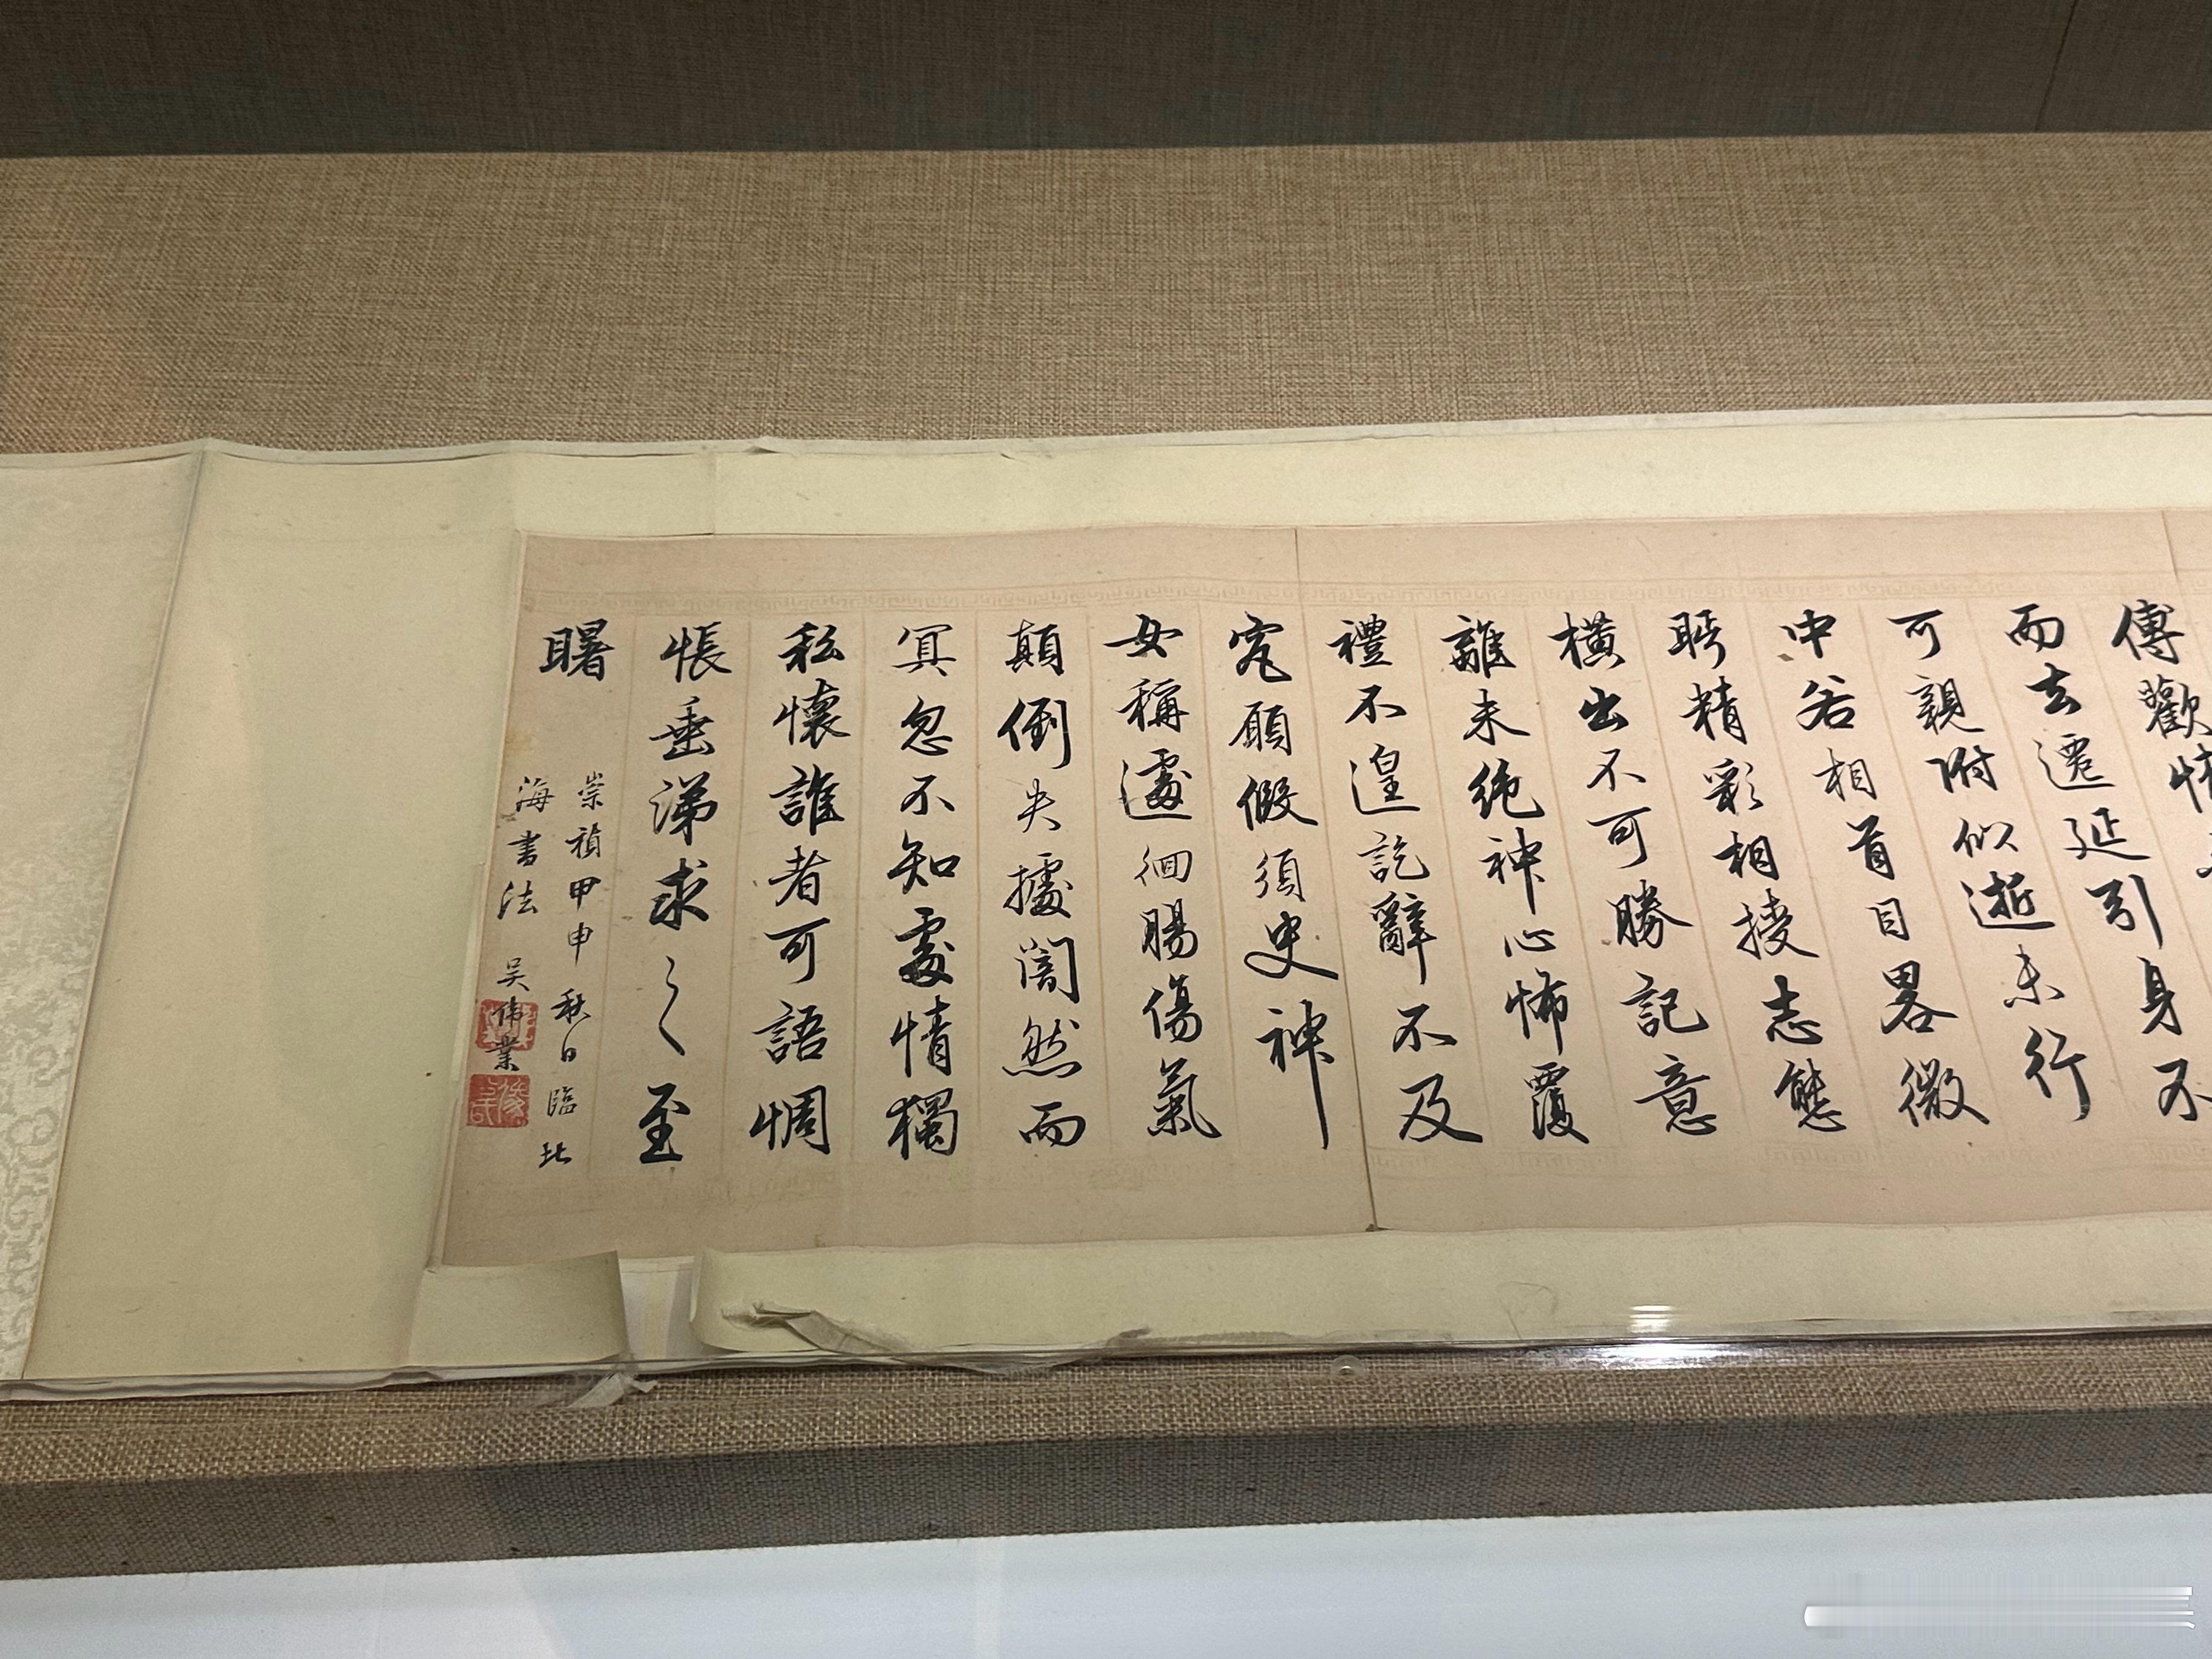 傅歡情
而去遷延引身不
可親附似逝未行
中若相首目畧微
眄精彩相授志態
橫出不可勝記意
離未絕神心怖覆
禮不遑訖辭不及
究願假須臾神
女稱遽徊腸傷氣
顛倒失據闇然而
冥忽不知處情獨
私懷誰者可語惆
悵垂涕求之至
曙
崇禎甲申秋日臨北
海書法 吳偉業